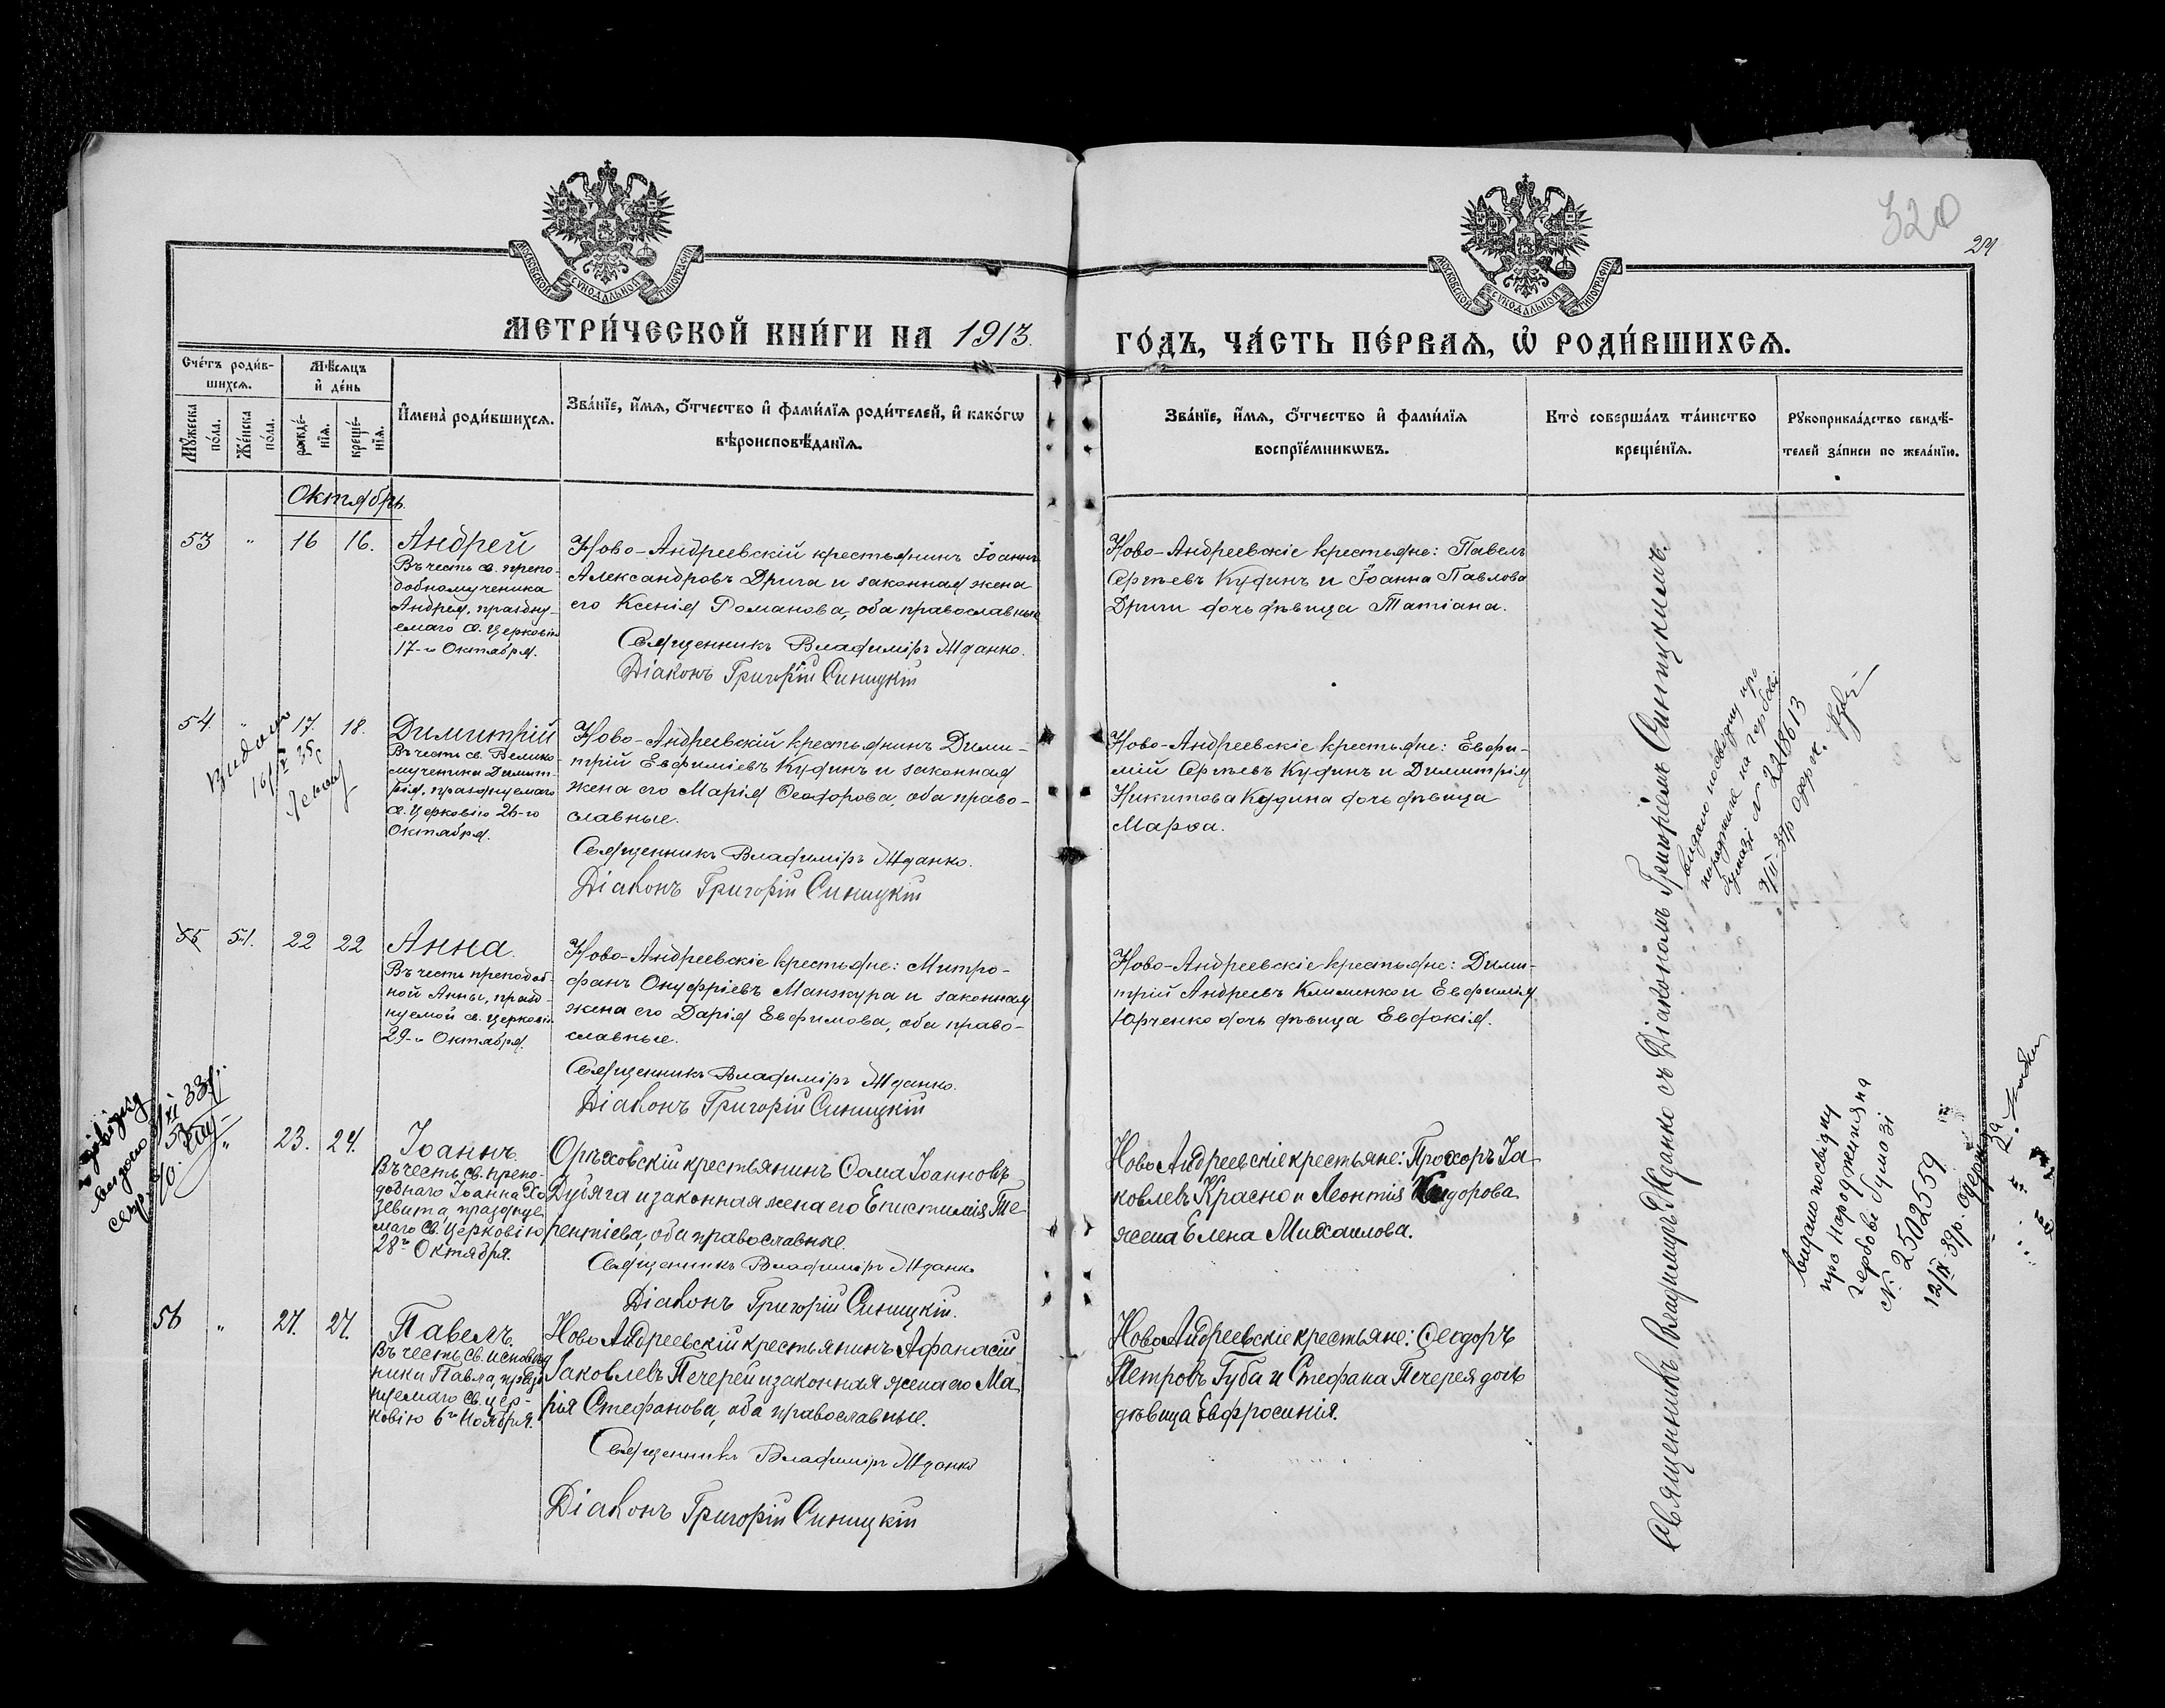 320
29
МОСКОВСКОЙ СѴНОДАЛЬНОЙ ТИПОГРАФІИ
МОСКОВСКОЙ СѴНОДАЛЬНОЙ ТИПОГРАФІИ
МЕТРИ́ЧЕСКОЙ КНИ́ГИ НА 1913.
ГО́ДЪ, ЧА́СТЬ ПЕ́РВАѦ, Ѡ҆ РОДИ́ВШИХСѦ.
Сче́тъ роди́в-
шихсѧ.
Мѣ́сѧцъ
и҆ де́нь
Мꙋ́жеска
по́ла.
Же́нска
по́ла.
рожде́-
нїѧ.
креще́-
нїѧ.
И҆мена̀ роди́вшихсѧ.
Зва́нїе, и҆́мѧ, ѻ҆́тчество и҆ фами́лїѧ роди́телей, и҆ како́гѡ
вѣроисповѣ́данїѧ.
Зва́нїе, и҆́мѧ, ѻ҆́тчество и҆ фами́лїѧ
воспрїе́мникѡвъ.
Кто̀ соверша́лъ та́инство
креще́нїѧ.
Рꙋкоприкла́дство свидѣ́-
телей за́писи по жела́нїю.
Октябрь.
53 " 16 16.
Андрей
Въ честь св. препо-
добномученика
Андрея, праздну-
емаго св. Церковію
17-го Октября.
Ново-Андреевскій крестьянинъ Іоаннъ
Александровъ Дрига и законная жена
его Ксенія Романова, оба православные
Священникъ Владиміръ Жданко.
Діаконъ Григорій Синицкій
Ново-Андреевскіе крестьяне: Павелъ
Сергѣевъ Кудинъ и Іоанна Павлова
Дриги дочь дѣвица Татіана.
54 " 17. 18.
Видано
Димитрій
Въ честь св. Велико-
мученика Димит-
рія, празднуемаго
св. Церковію 26-го
Октября.
Ново-Андреевскій крестьянинъ Дими-
трій Евфиміевъ Кудинъ и законная
жена его Марія Ѳеодорова, оба право-
славные.
Священникъ Владиміръ Жданко.
Діаконъ Григорій Синицкій
Ново-Андреевскіе крестьяне: Евфи-
мій Сергѣевъ Кудинъ и Димитрія
Никитова Кудина дочь дѣвица
Марѳа.
видано посвідку про
народження на гербові
бумазі N 2218613
55 51. 22 22
Анна.
Въ честь преподоб-
ной Анны, празд-
нуемой св. Церковію
29-го Октября.
Ново-Андреевскіе крестьяне: Митро-
фанъ Онуфріевъ Манжура и законная
жена его Дарія Евфимова, оба право-
славные.
Священникъ Владиміръ Жданко.
Діаконъ Григорій Синицкій
Ново-Андреевскіе крестьяне: Дими-
трій Андреевъ Клименко и Евфимія
Юрченко дочь дѣвица Евдокія.
" 23. 24.
Іоаннъ.
Въ честь св. препо-
добнаго Іоанна Хо
зевита, празднуе
маго Св. Церковію
28го Октября.
Орѣховскій крестьянинъ Ѳома Іоанновъ
Дудяга и законная жена его Епистимія Те
рентіева, оба православные.
Священникъ Владиміръ Жданко
Діаконъ Григорій Синицкій.
Ново Андреевскіе крестьяне: Прохоръ Іа-
ковлевъ Красно и Леонтія Кидорова
жена Елена Михаилова.
видано посвідку
про народження на
гербові бумазі
N. 2502559
56 " 27. 27.
Павелъ.
Въ честь св. исповѣд
ника Павла, праздн
уемаго св. Цер-
ковію 6го Ноября.
Ново Андреевскій крестьянинъ Афанасій
Іаковлевъ Печерей и законная жена его Ма
рія Стефанова, оба православные.
Священникъ Владиміръ Жданко
Діаконъ Григорій Синицкій
Ново Андреевскіе крестьяне: Ѳеодоръ
Петровъ Губа и Стефана Печерея дочь
дѣвица Евфросинія.
Священникъ Владиміръ Жданко съ Діакономъ Григоріемъ Синицкимъ.